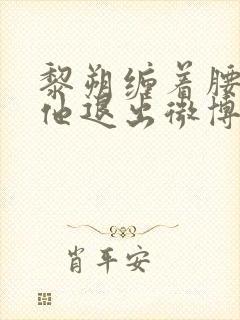 黎朔缠着腰
他退出微博
肖平安